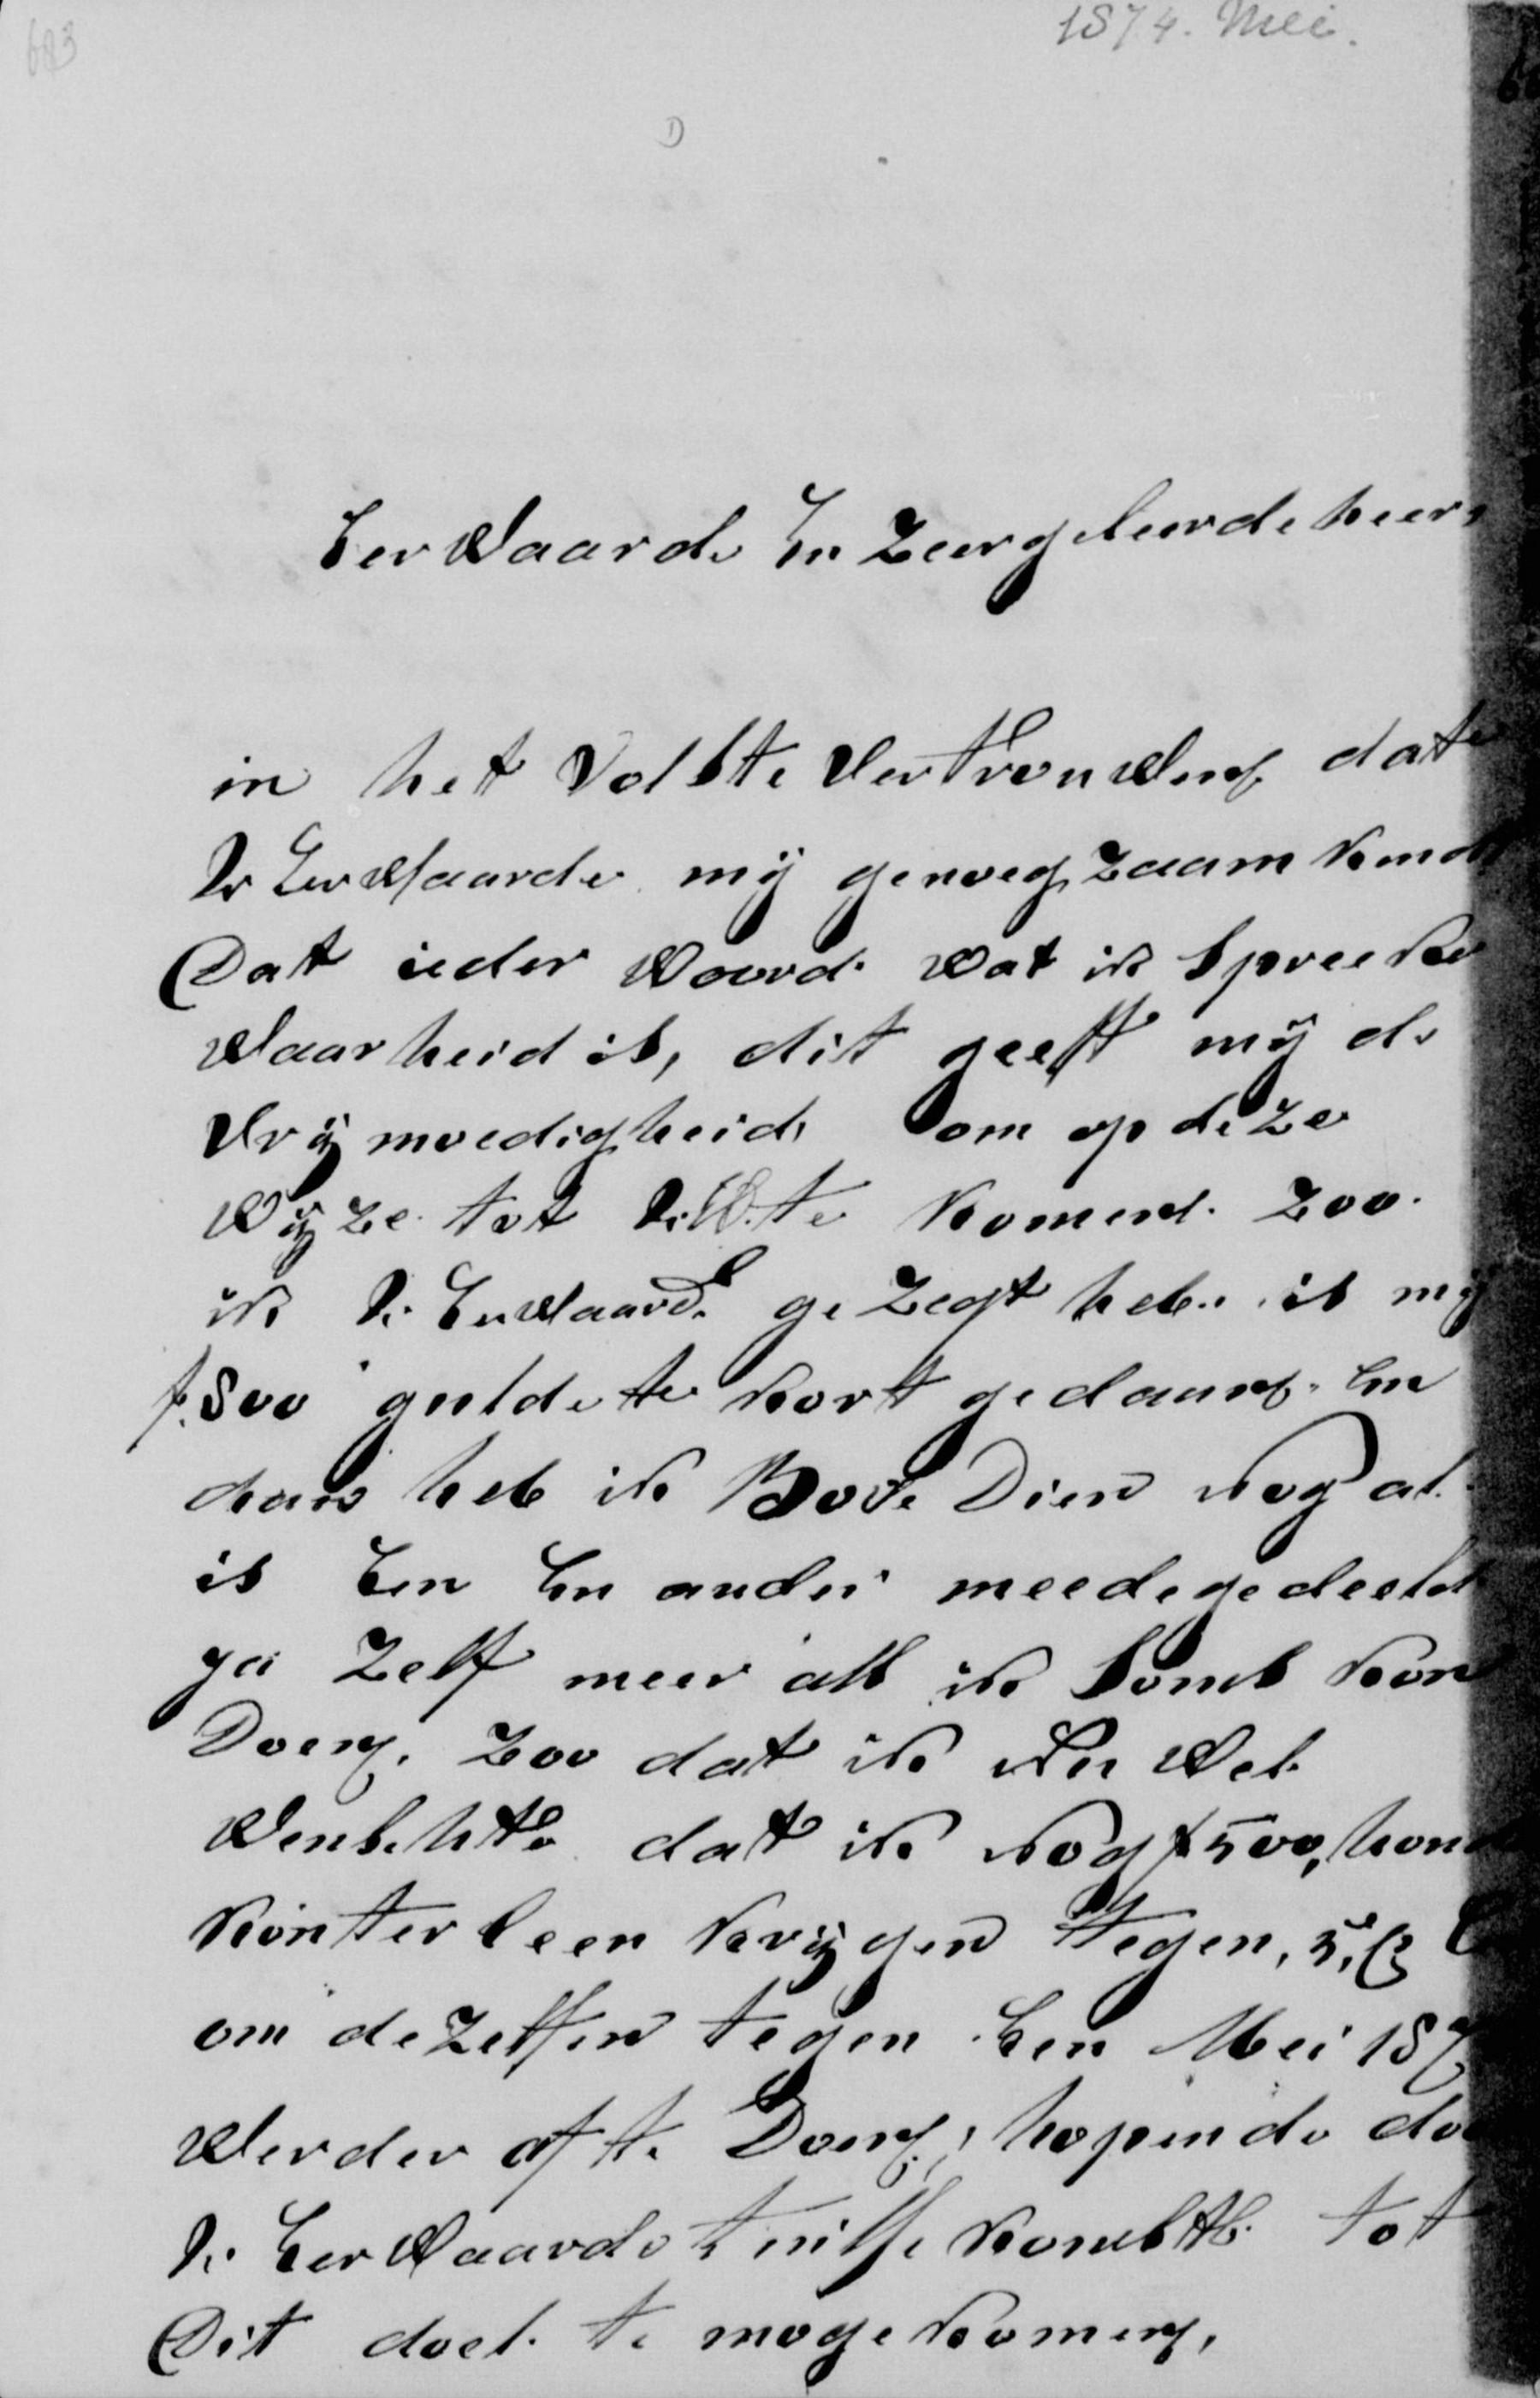 683
1874. Mei.
D
Eerwaarde En Zeergeleerde heer
in het volste vertrouwen dat
U Eerwaarde mij genoegzaam kend
Dat ieder woord wat ik spreeke
waarheid is, dit geeft mij de
vrijmoedigheid om op deze
wijze tot U.W. te komen. Zoo
ik U Eerwaarde gezegt heb is mij
f. 800 gulde te kort gedaan. En
dan heb ik Bove Dien nog al
is Een En ander meedegedeeld
ja Zelf meer als ik soms kon
Doen. Zoo dat ik nu wel
wenschte dat ik nog f 500, hond
kon ter leen krijgen tegen, 5,
om dezelfen tegen Een Mei 187
werder af te Doen; hopende do
U Eerwaarde tuisse komste tot
Dit doel te moge komen,